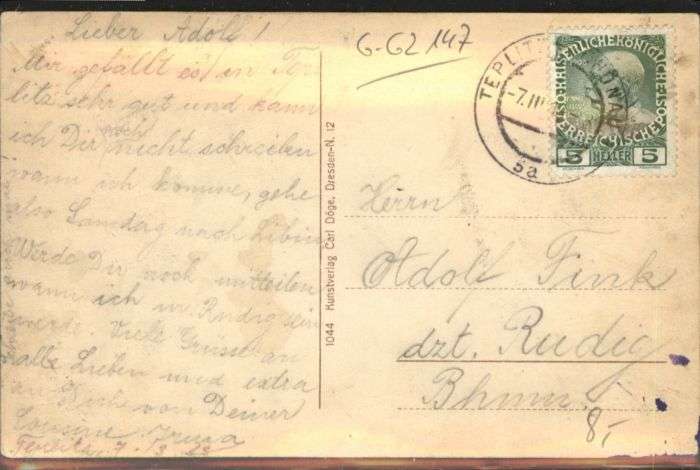 Lieber Adolf!
Mir gefällt es in Tep-
litz sehr gut und kann
ich Dir noch nicht schreiben
wann ich komme, gehe
also Samstag nach
Werde Dir noch mitteilen
wann ich in Rudig sein
werde. Viele Grüsse an
alle Lieben und extra
an Dich von Deiner
Cousine
Teplitz, 7
G-G2 147
TEPLITZ-SCHÖNAU
-7.III
5a
KAISERLICHEKÖNIGLICHE
ÖSTERREICHISCHEPOST
5 HELLER 5
1044 Kunstverlag Carl Döge, Dresden-N. 12
Herrn
Adolf Fink
dzt. Rudig
Bhmn.
8,-